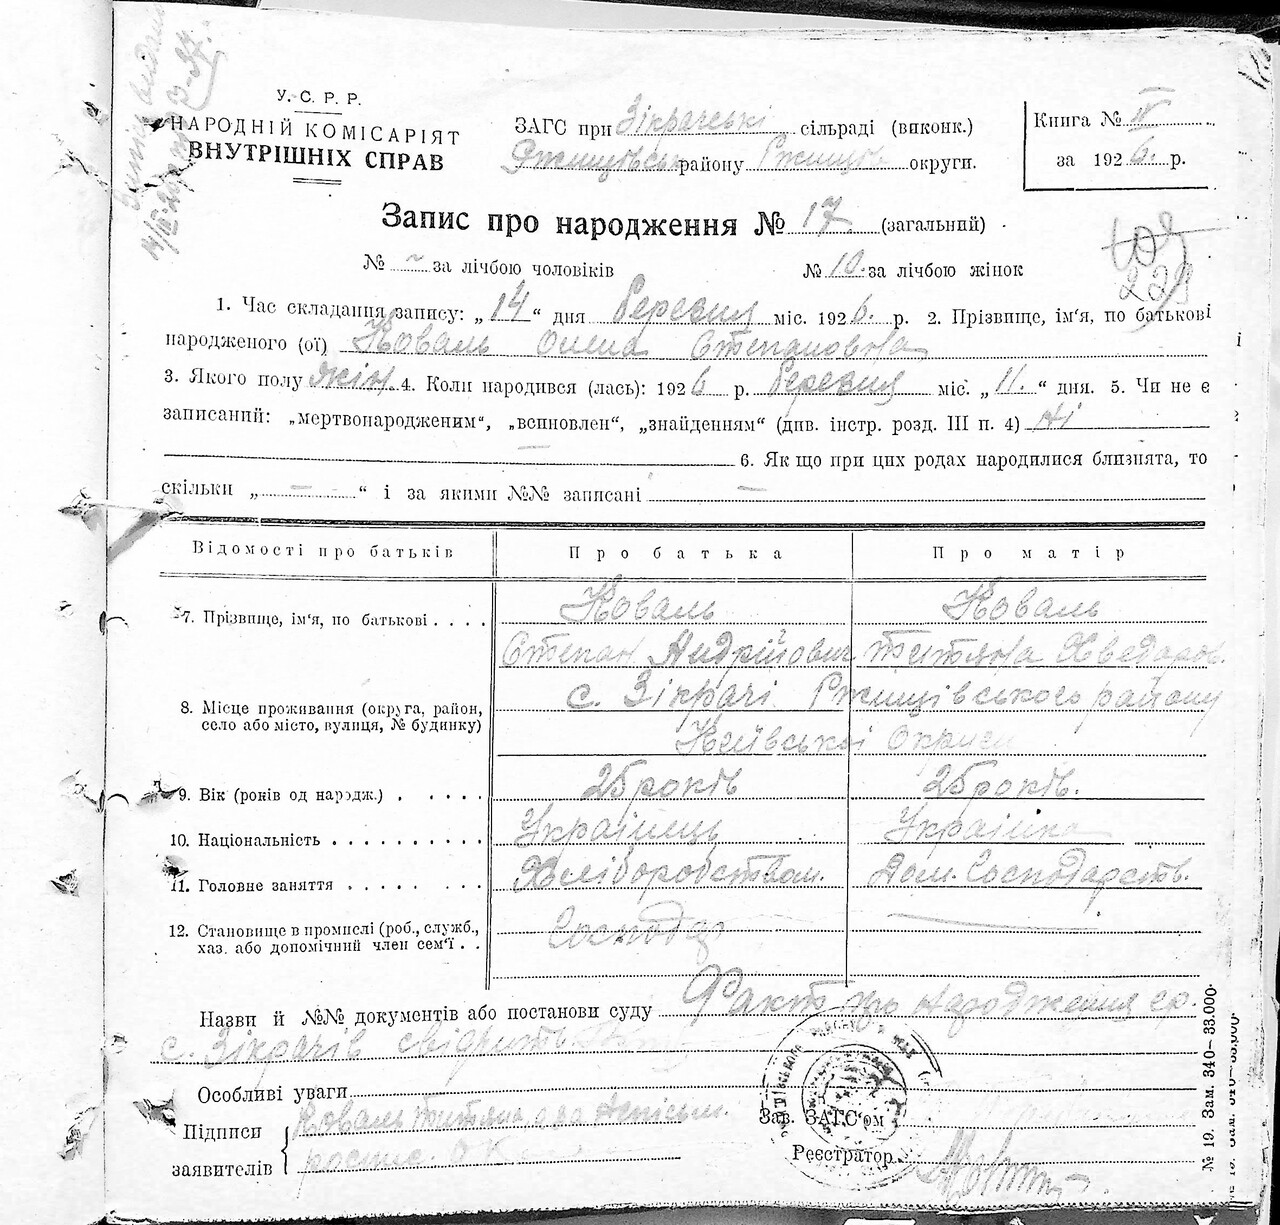 У. С. Р. Р.
НАРОДНІЙ КОМІСАРІЯТ
ВНУТРІШНІХ СПРАВ
ЗАГС при Зікрачські сільраді (виконк.)
Ржищівськ району Ржищів округи.
Книга № IV
за 1926. р.
Запис про народження № 17. (загальний)
№ – за лічбою чоловіків № 10. за лічбою жінок
229
1. Час складання запису: „14“ дня березня міс. 1926. р. 2. Прізвище, ім'я, по батькові
народженого (ої) Коваль Олена Степановна
3. Якого полу жін 4. Коли народився (лась): 1926 р. березня міс. „11.“ дня. 5. Чи не є
записаний: „мертвонародженим“, „всиновлен“, „знайденням“ (див. інстр. розд. III п. 4) ні
6. Як що при цих родах народилися близнята, то
скільки „ – “ і за якими №№ записані –
Відомості про батьків Про батька Про матір
7. Прізвище, ім'я, по батькові . . . . Коваль Коваль
Степан Андрійович Титяна Хведоров.
8. Місце проживання (округа, район, с. Зікрачі Ржищівського району
село або місто, вулиця, № будинку)
Київської Округи
9. Вік (років од народж.) . . . . . 25 років 25 років.
10. Національність . . . . . . . . . . Українець Українка
11. Головне заняття . . . . . . . . . Хліборобством. Дом. Господарств.
12. Становище в промислі (роб., служб., Господар
хаз. або допомічний член сем'ї . .
Назви й №№ документів або постанови суду Факт про народження ср.
с. Зікрачів свідчить
Особливі уваги
Підписи Коваль Титяна, а за неписьм.
заявителів роспис.
Зав. ЗАГС'ом
Реєстратор
№ 19. Зам. 340–33.000·